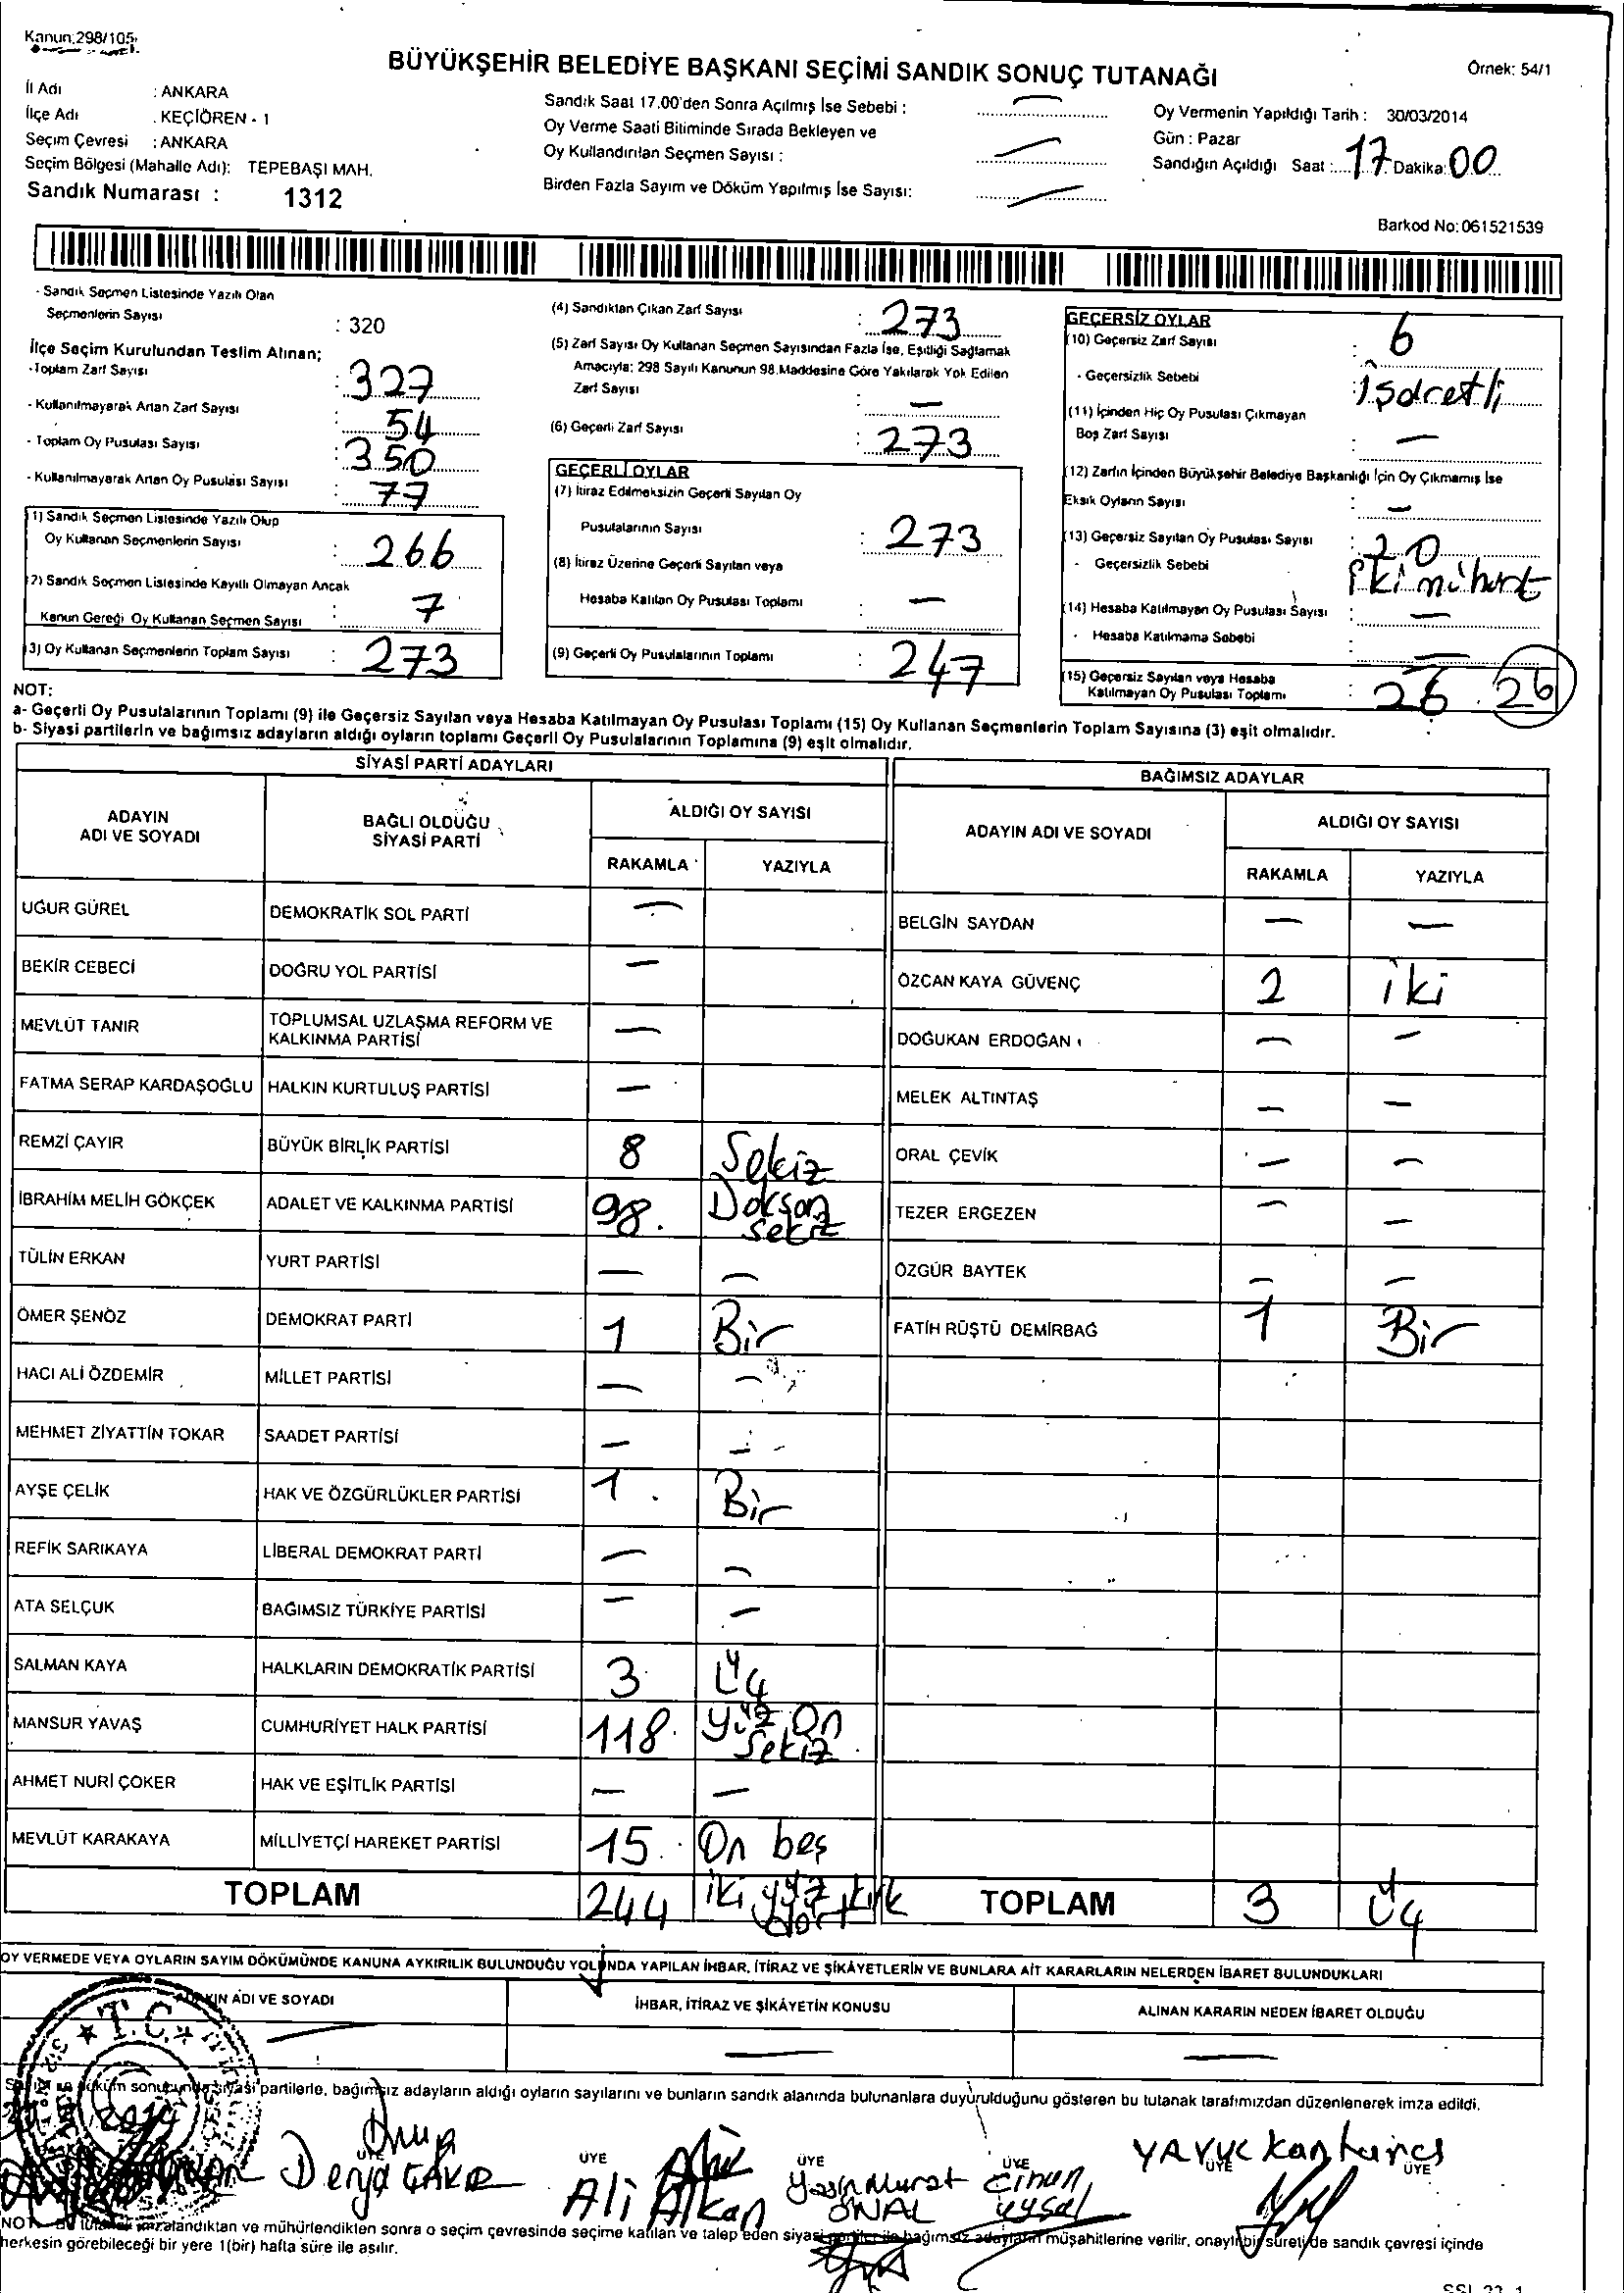 Kanun:298/105
BÜYÜKŞEHİR BELEDİYE BAŞKANI SEÇİMİ SANDIK SONUÇ TUTANAĞI
Örnek: 54/1
İl Adı : ANKARA
İlçe Adı : KEÇİÖREN - 1
Seçim Çevresi : ANKARA
Seçim Bölgesi (Mahalle Adı): TEPEBAŞI MAH.
Sandık Numarası : 1312
Sandık Saat 17.00'den Sonra Açılmış İse Sebebi : —
Oy Verme Saati Bitiminde Sırada Bekleyen ve
Oy Kullandırılan Seçmen Sayısı : —
Birden Fazla Sayım ve Döküm Yapılmış İse Sayısı: —
Oy Vermenin Yapıldığı Tarih : 30/03/2014
Gün : Pazar
Sandığın Açıldığı Saat :....17 Dakika:00
Barkod No:061521539
- Sandık Seçmen Listesinde Yazılı Olan
Seçmenlerin Sayısı : 320
İlçe Seçim Kurulundan Teslim Alınan;
-Toplam Zarf Sayısı : 327
- Kullanılmayarak Artan Zarf Sayısı : 54
- Toplam Oy Pusulası Sayısı : 350
- Kullanılmayarak Artan Oy Pusulası Sayısı : 77
1) Sandık Seçmen Listesinde Yazılı Olup
Oy Kullanan Seçmenlerin Sayısı : 266
2) Sandık Seçmen Listesinde Kayıtlı Olmayan Ancak
Kanun Gereği Oy Kullanan Seçmen Sayısı : 7
3) Oy Kullanan Seçmenlerin Toplam Sayısı : 273
(4) Sandıktan Çıkan Zarf Sayısı : 273
(5) Zarf Sayısı Oy Kullanan Seçmen Sayısından Fazla İse, Eşitliği Sağlamak
Amacıyla: 298 Sayılı Kanunun 98.Maddesine Göre Yakılarak Yok Edilen
Zarf Sayısı : —
(6) Geçerli Zarf Sayısı : 273
GEÇERLİ OYLAR
(7) İtiraz Edilmeksizin Geçerli Sayılan Oy
Pusulalarının Sayısı : 273
(8) İtiraz Üzerine Geçerli Sayılan veya
Hesaba Katılan Oy Pusulası Toplamı : —
(9) Geçerli Oy Pusulalarının Toplamı : 247
GEÇERSİZ OYLAR
(10) Geçersiz Zarf Sayısı : 6
- Geçersizlik Sebebi : işaretli
(11) İçinden Hiç Oy Pusulası Çıkmayan
Boş Zarf Sayısı : —
(12) Zarfın İçinden Büyükşehir Belediye Başkanlığı İçin Oy Çıkmamış İse
Eksik Oyların Sayısı : —
(13) Geçersiz Sayılan Oy Pusulası Sayısı : 20
- Geçersizlik Sebebi : iki mühürt
(14) Hesaba Katılmayan Oy Pusulası Sayısı : —
- Hesaba Katılmama Sebebi : —
(15) Geçersiz Sayılan veya Hesaba
Katılmayan Oy Pusulası Toplamı : 26 26
NOT:
a- Geçerli Oy Pusulalarının Toplamı (9) ile Geçersiz Sayılan veya Hesaba Katılmayan Oy Pusulası Toplamı (15) Oy Kullanan Seçmenlerin Toplam Sayısına (3) eşit olmalıdır.
b- Siyasi partilerin ve bağımsız adayların aldığı oyların toplamı Geçerli Oy Pusulalarının Toplamına (9) eşit olmalıdır.
SİYASİ PARTİ ADAYLARI
ADAYIN ADI VE SOYADI BAĞLI OLDUĞU SİYASİ PARTİ ALDIĞI OY SAYISI
RAKAMLA YAZIYLA
UĞUR GÜREL DEMOKRATİK SOL PARTİ —
BEKİR CEBECİ DOĞRU YOL PARTİSİ —
MEVLÜT TANIR TOPLUMSAL UZLAŞMA REFORM VE KALKINMA PARTİSİ —
FATMA SERAP KARDAŞOĞLU HALKIN KURTULUŞ PARTİSİ —
REMZİ ÇAYIR BÜYÜK BİRLİK PARTİSİ 8 Sekiz
İBRAHİM MELİH GÖKÇEK ADALET VE KALKINMA PARTİSİ 98. Doksan sekiz
TÜLİN ERKAN YURT PARTİSİ — —
ÖMER ŞENÖZ DEMOKRAT PARTİ 1 Bir
HACI ALİ ÖZDEMİR MİLLET PARTİSİ — —
MEHMET ZİYATTİN TOKAR SAADET PARTİSİ — —
AYŞE ÇELİK HAK VE ÖZGÜRLÜKLER PARTİSİ 1. Bir
REFİK SARIKAYA LİBERAL DEMOKRAT PARTİ — —
ATA SELÇUK BAĞIMSIZ TÜRKİYE PARTİSİ — —
SALMAN KAYA HALKLARIN DEMOKRATİK PARTİSİ 3 Üç
MANSUR YAVAŞ CUMHURİYET HALK PARTİSİ 118. yüz on sekiz
AHMET NURİ ÇOKER HAK VE EŞİTLİK PARTİSİ — —
MEVLÜT KARAKAYA MİLLİYETÇİ HAREKET PARTİSİ 15. On beş
TOPLAM 244 iki yüz kırk dört
BAĞIMSIZ ADAYLAR
ADAYIN ADI VE SOYADI ALDIĞI OY SAYISI
RAKAMLA YAZIYLA
BELGİN SAYDAN — —
ÖZCAN KAYA GÜVENÇ 2 iki
DOĞUKAN ERDOĞAN — —
MELEK ALTINTAŞ — —
ORAL ÇEVİK — —
TEZER ERGEZEN — —
ÖZGÜR BAYTEK — —
FATİH RÜŞTÜ DEMİRBAĞ 1 Bir
TOPLAM 3 Üç
OY VERMEDE VEYA OYLARIN SAYIM DÖKÜMÜNDE KANUNA AYKIRILIK BULUNDUĞU YOLUNDA YAPILAN İHBAR, İTİRAZ VE ŞİKÂYETLERİN VE BUNLARA AİT KARARLARIN NELERDEN İBARET BULUNDUKLARI
ADI VE SOYADI İHBAR, İTİRAZ VE ŞİKÂYETİN KONUSU ALINAN KARARIN NEDEN İBARET OLDUĞU
— — —
T.C.
döküm sonucunda siyasi partilerle, bağımsız adayların aldığı oyların sayılarını ve bunların sandık alanında bulunanlara duyurulduğunu gösteren bu tutanak tarafımızdan düzenlenerek imza edildi.
2014
ÜYE ÜYE ÜYE ÜYE ÜYE ÜYE
Derya ÇAKIR
Ali Alkan
Yasin Murat ÖNAL
uysal
YAVUZ
NOT: Bu tutanak imzalandıktan ve mühürlendikten sonra o seçim çevresinde seçime katılan ve talep eden siyasi partiler ile bağımsız adayların müşahitlerine verilir, onaylı bir sureti de sandık çevresi içinde
herkesin görebileceği bir yere 1(bir) hafta süre ile asılır.